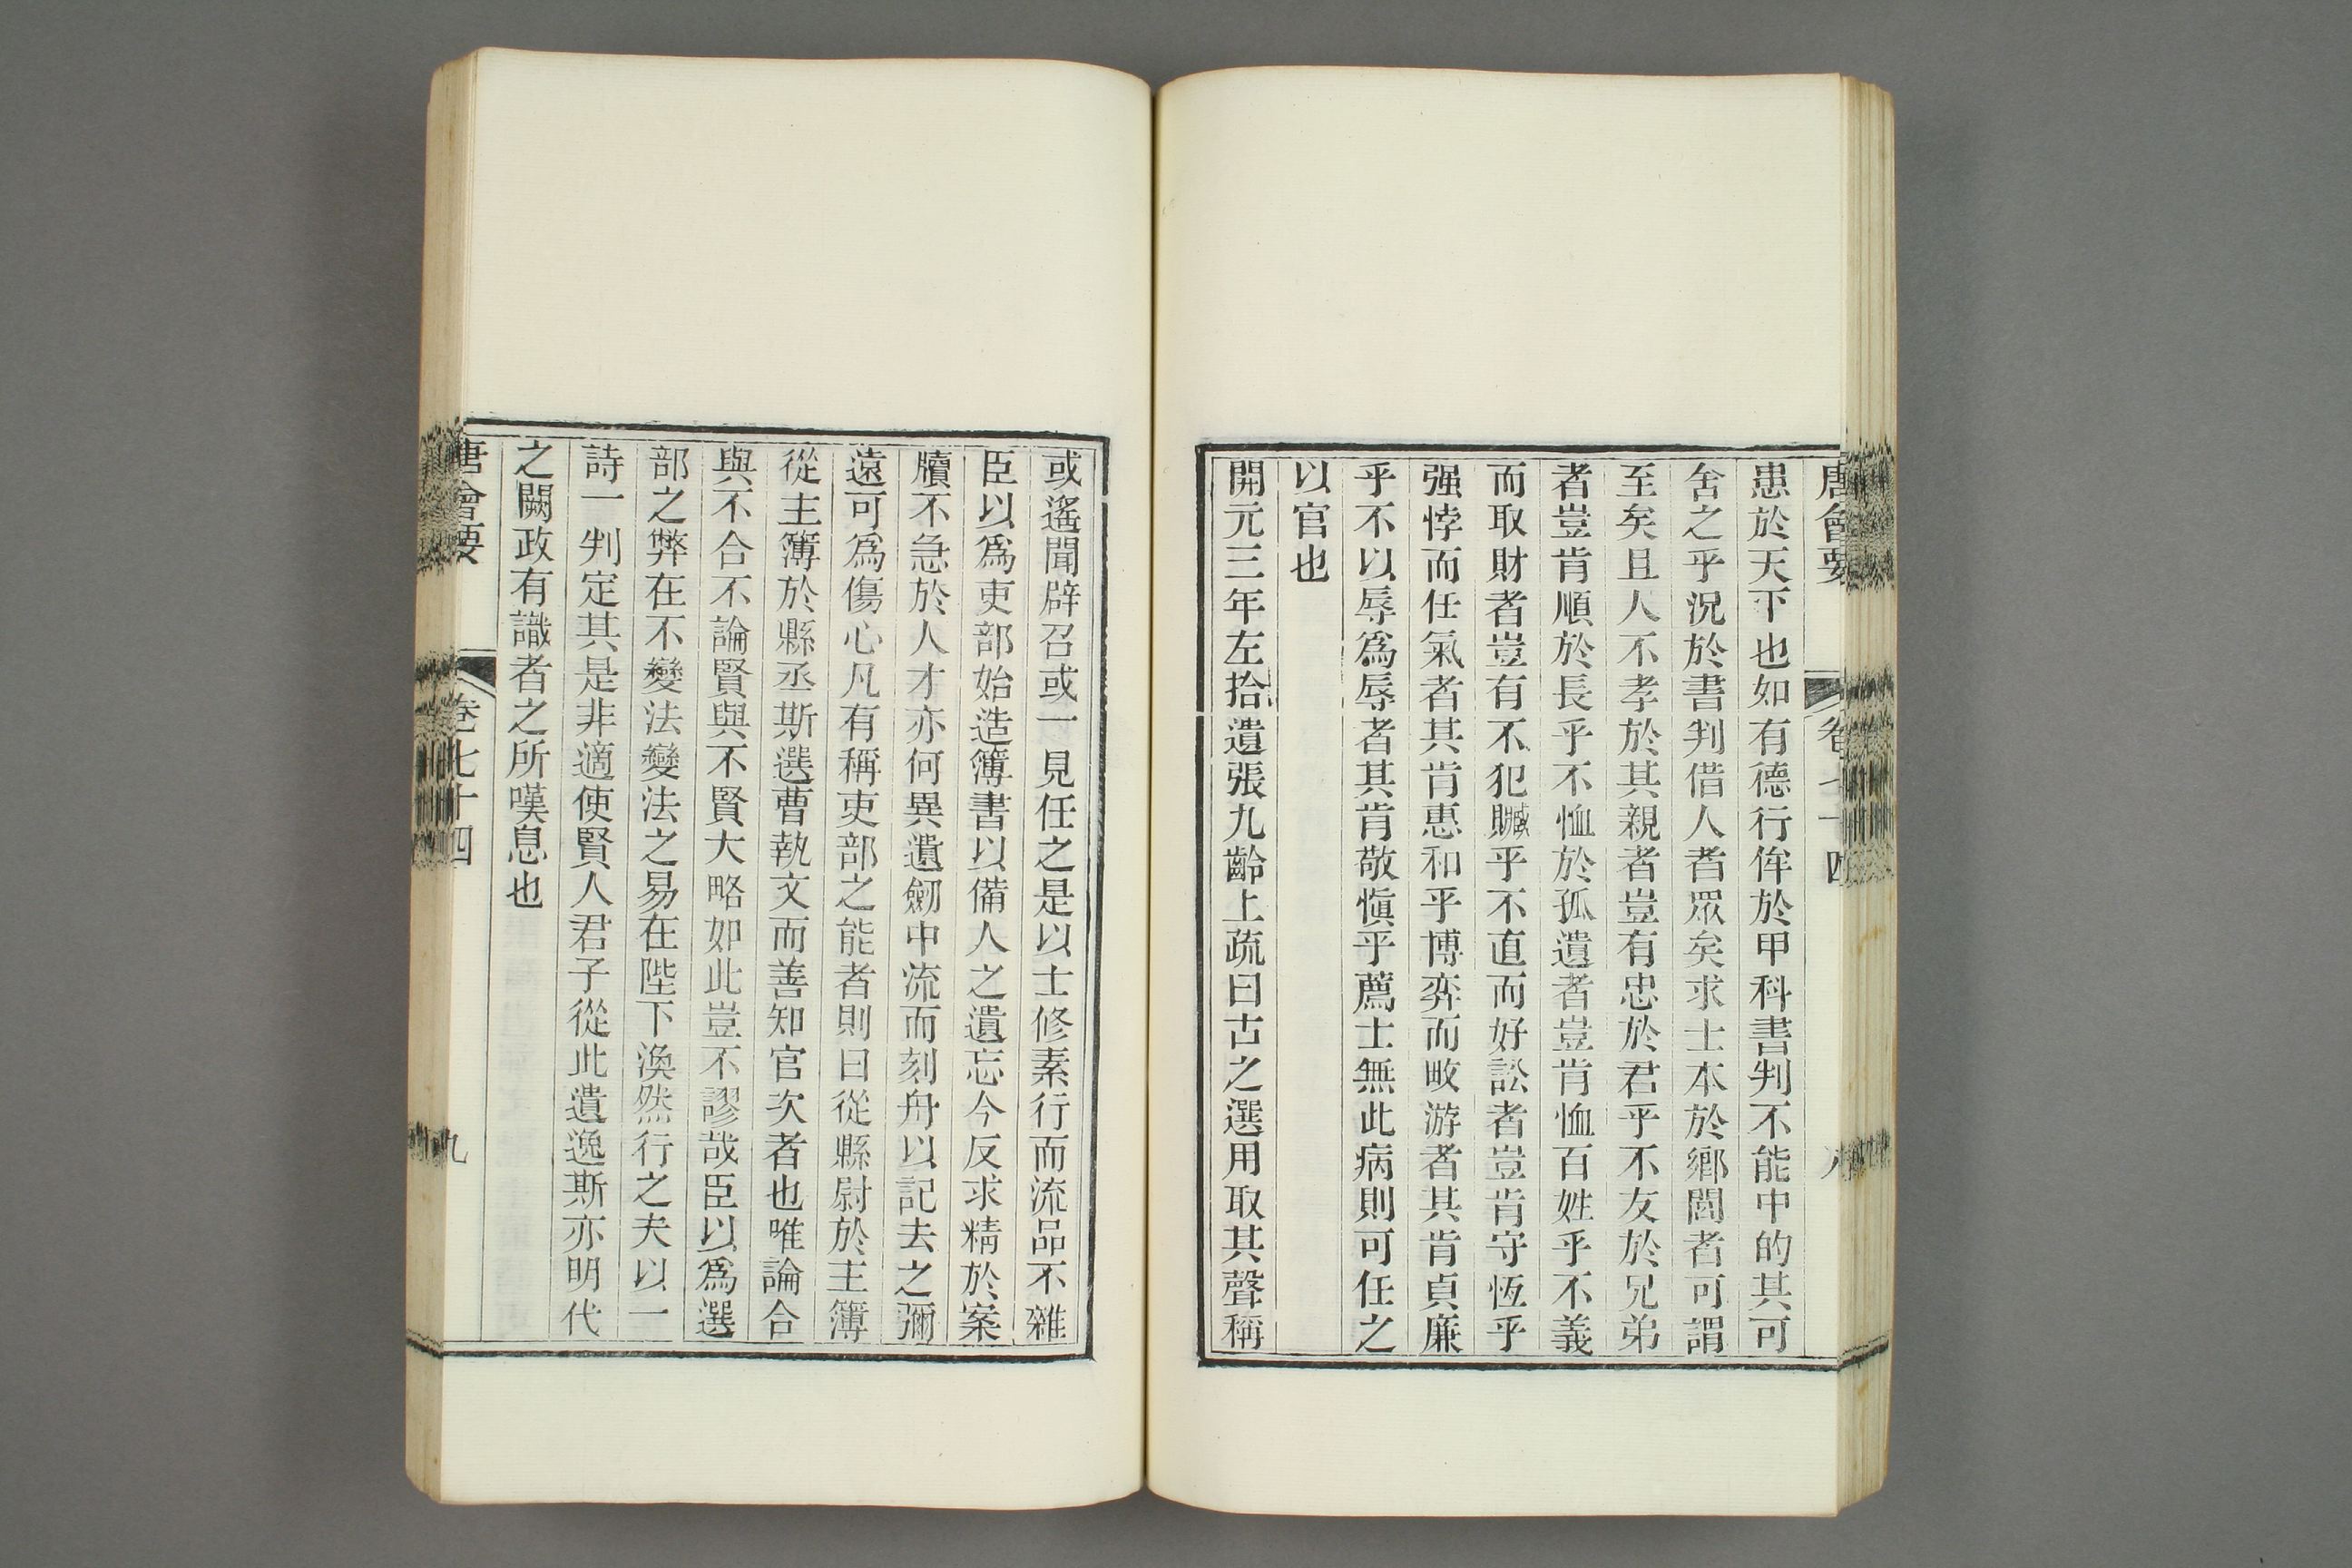 唐會要 卷七十四 八
患於天下也如有德行侔於甲科書判不能中的其可
舍之乎況於書判借人者眾矣求士本於鄉閭者可謂
至矣且人不孝於其親者豈有忠於君乎不友於兄弟
者豈肯順於長乎不恤於孤遺者豈肯恤百姓乎不義
而取財者豈有不犯贓乎不直而好訟者豈肯守恆乎
强悖而任氣者其肯惠和乎博弈而畋游者其肯貞廉
乎不以辱爲辱者其肯敬愼乎薦士無此病則可任之
以官也
開元三年左拾遺張九齡上疏曰古之選用取其聲稱
或遙聞辟召或一見任之是以士修素行而流品不雜
臣以爲吏部始造簿書以備人之遺忘今反求精於案
牘不急於人才亦何異遺劒中流而刻舟以記去之彌
遠可爲傷心凡有稱吏部之能者則曰從縣尉於主簿
從主簿於縣丞斯選曹執文而善知官次者也唯論合
與不合不論賢與不賢大略如此豈不謬哉臣以爲選
部之弊在不變法變法之易在陛下渙然行之夫以一
詩一判定其是非適使賢人君子從此遺逸斯亦明代
之闕政有識者之所嘆息也
唐會要 卷七十四 九